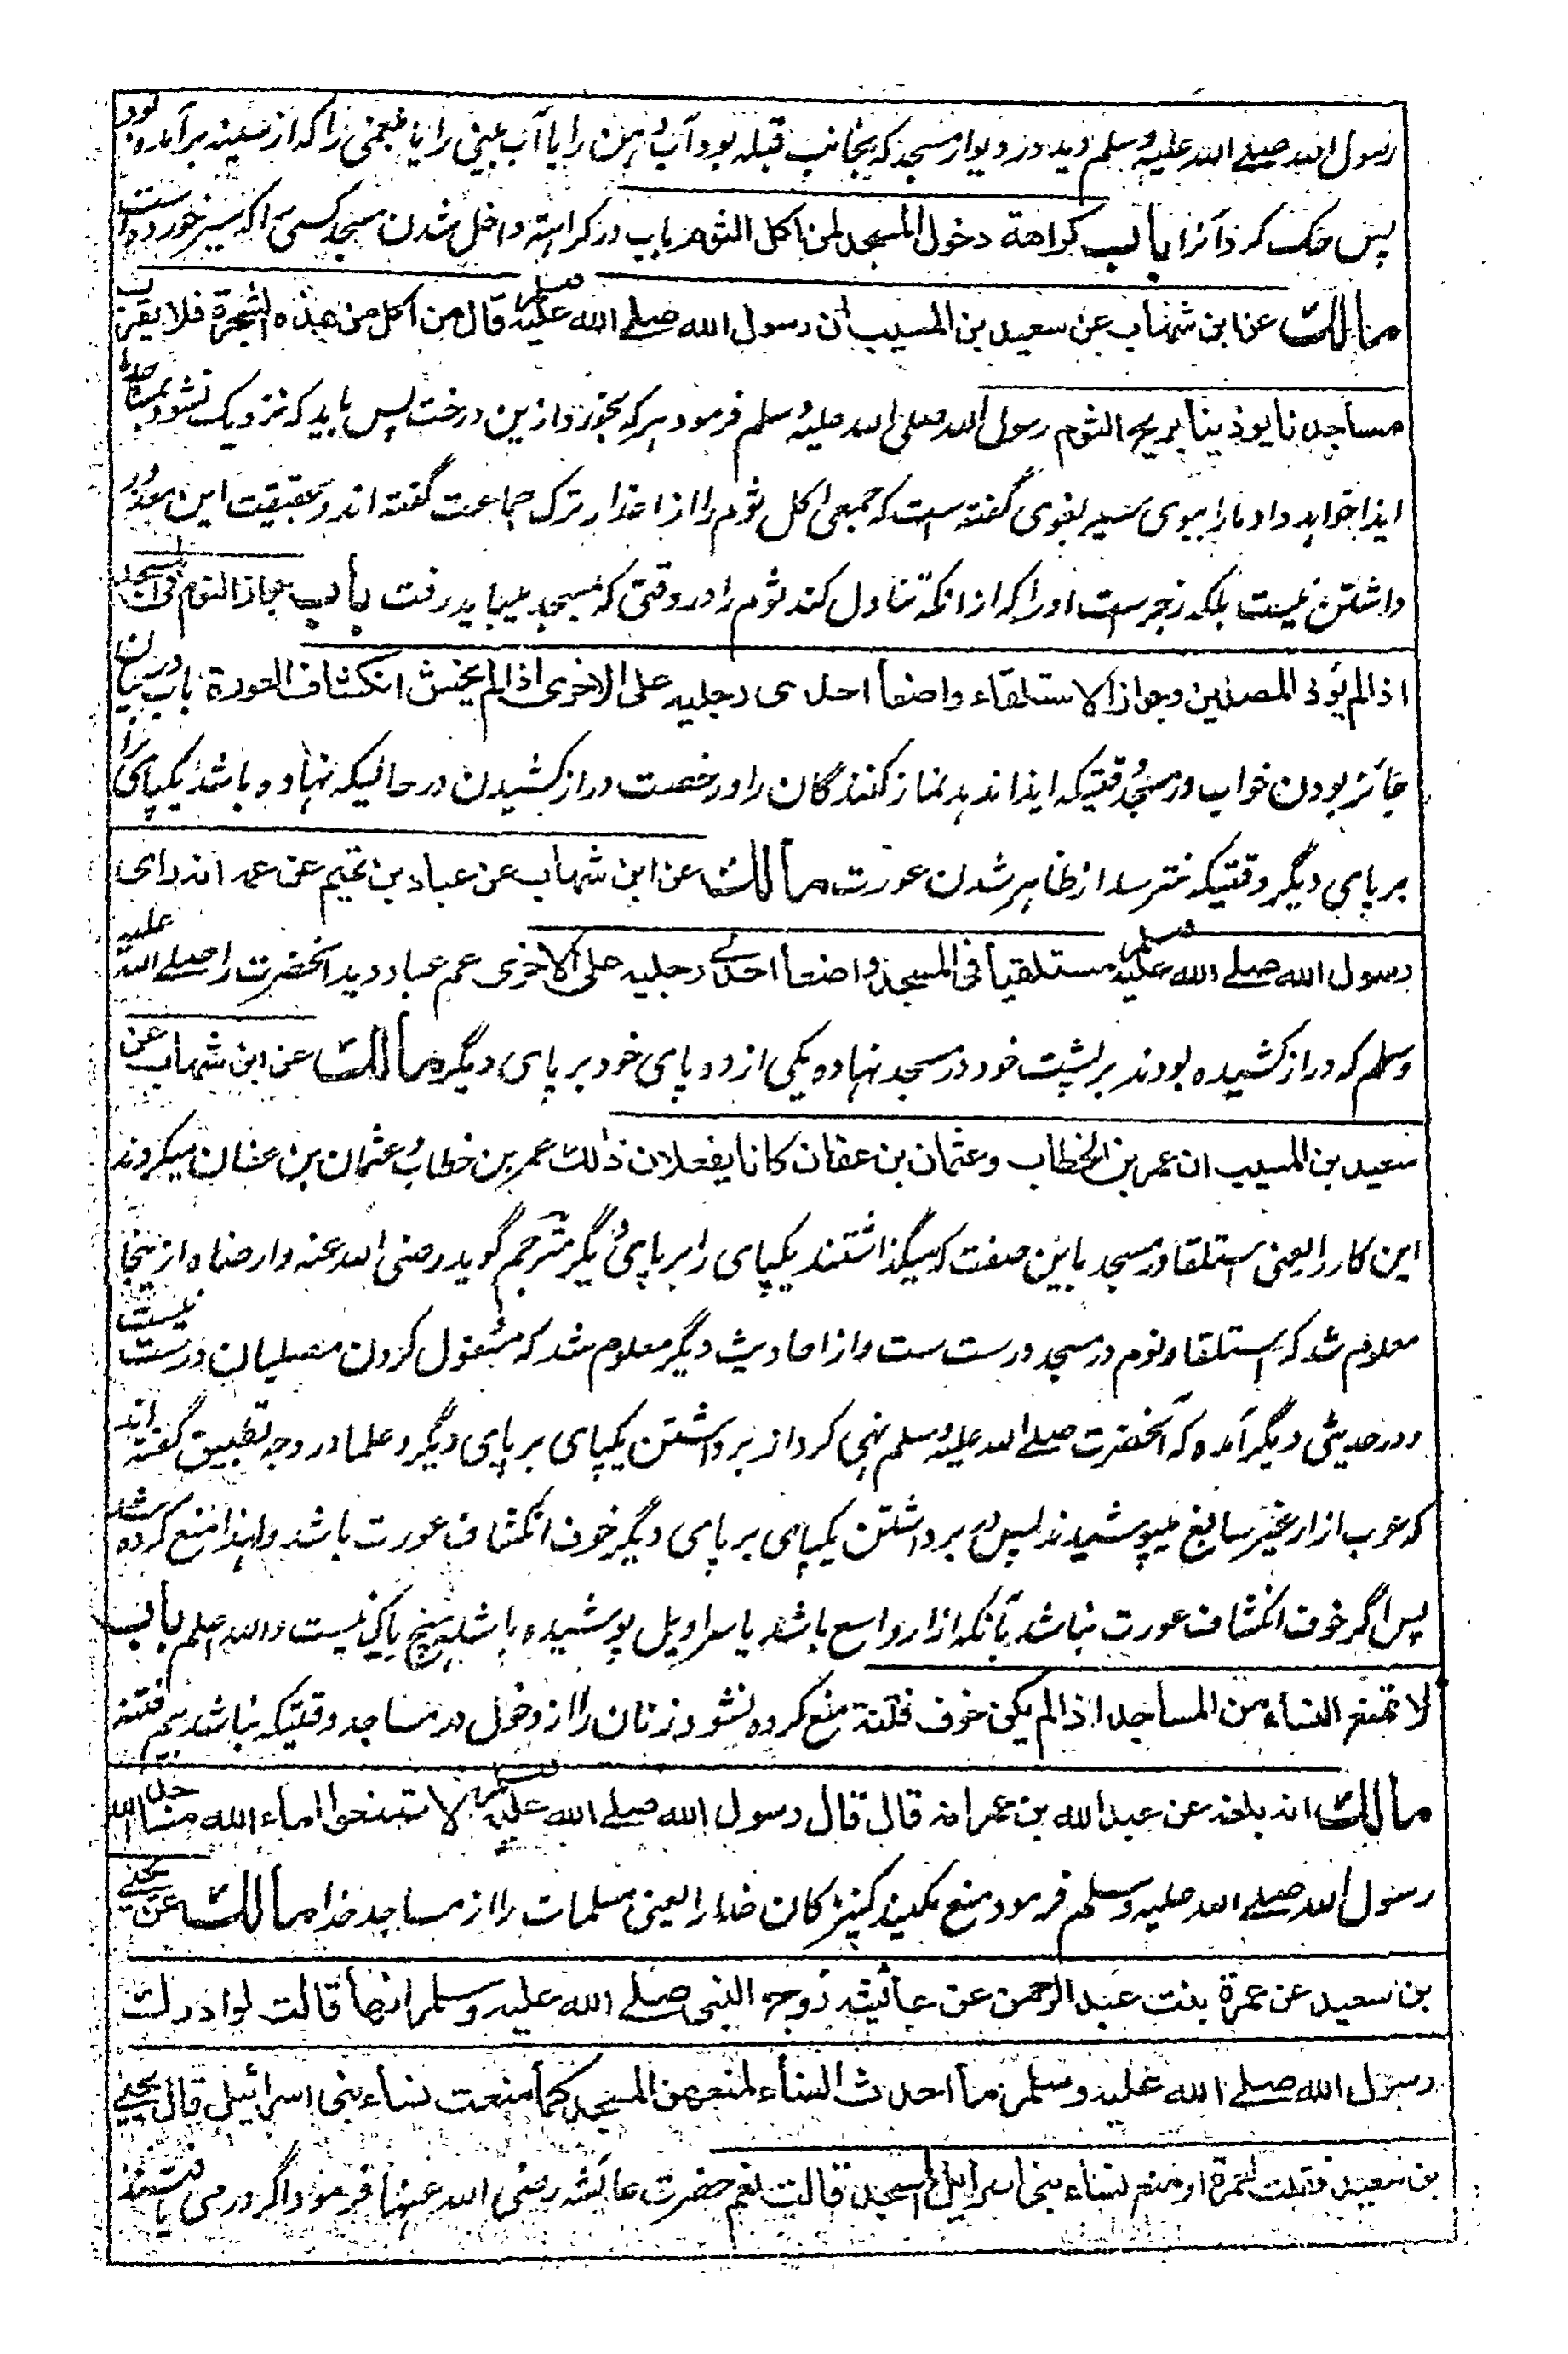 رسول الله صلے الله علیه وسلم دید در دیوار مسجد که بجانب قبله بود آب دهن را یا آب بینی را یا بلغمی را که از سینه برآمده بود
پس حک کرد آنرا باب کراهة دخول المسجد لمن اکل الثوم باب در کراهته داخل شدن مسجد کسی را که سیر خورده است
مالك عن ابن شهاب عن سعید بن المسیب ان رسول الله صلے الله علیه وسلم قال من اکل من هذه الشجرة فلا یقرب
مساجدنا یوذینا بریح الثوم رسول الله صلی الله علیه وسلم فرمود هر که بخورد ازین درخت پس باید که نزدیک نشود بمساجد ما
ایذا خواهد داد ما را ببوی سیر بغوی گفته است که جمعی اکل ثوم را از اعذار ترک جماعت گفته اند و بحقیقت این معذور
داشتن نیست بلکه زجر ست او را که از انکه تناول کند ثوم را در وقتی که بمسجد میباید رفت باب جواز النوم فی المسجد
اذا لم یؤذ المصلین وجواز الاستلقاء واضعا احدی رجلیه علی الاخری اذا لم یخش انکشاف العورة باب در بیان
جائز بودن خواب در مسجد وقتیکه ایذا ندهد نماز کنندگان را و رخصت دراز کشیدن در حالیکه نهاده باشد یکپای را
بر پای دیگر وقتیکه نترسد از ظاهر شدن عورت مالك عن ابن شهاب عن عباد بن تمیم عن عمه انه رای
رسول الله صلے الله علیه وسلم مستلقیا فی المسجد واضعا احدی رجلیه علی الاخری عم عباد دید آنحضرت را صلے الله علیه
وسلم که دراز کشیده بودند بر پشت خود در مسجد نهاده یکی از دو پای خود بر پای دیگر مالك عن ابن شهاب عن
سعید بن المسیب ان عمر بن الخطاب وعثمان بن عفان کانا یفعلان ذلك عمر بن خطاب و عثمان بن عفان میکردند
این کار را یعنی استلقا در مسجد باین صفت که میگذاشتند یکپای را بر پای دیگر مترجم گوید رضی الله عنه وارضاه از ینجا
معلوم شد که استلقا و نوم در مسجد درست ست و از احادیث دیگر معلوم شد که مشغول کردن مصلیان درست نیست
و در حدیثی دیگر آمده که آنحضرت صلے الله علیه وسلم نهی کرد از برداشتن یکپای بر پای دیگر و علما در وجه تطبیق گفته اند
که عرب ازار غیر سابغ میپوشیدند پس در برداشتن یکپای بر پای دیگر خوف انکشاف عورت باشد ولهذا منع کرده شد
پس اگر خوف انکشاف عورت نباشد بآنکه ازار واسع باشد یا سراویل پوشیده باشد هیچ باکی نیست والله اعلم باب
لا تمنع النساء من المساجد اذا لم یکن خوف فتنة منع کرده نشود زنان را از دخول در مساجد وقتیکه نباشد بیم فتنه
مالك انه بلغه عن عبد الله بن عمر انه قال قال رسول الله صلے الله علیه وسلم لا تمنعوا اماء الله مساجد الله
رسول الله صلے الله علیه وسلم فرمود منع مکنید کنیزکان خدا را یعنی مسلمات را از مساجد خدا مالك عن یحیی
بن سعید عن عمرة بنت عبد الرحمن عن عائشة زوج النبی صلے الله علیه وسلم انها قالت لو ادرك
رسول الله صلے الله علیه وسلم ما احدث النساء لمنعهن المسجد کما منعت نساء بنی اسرائیل قال یحیی
بن سعید فقلت لعمرة او منع نساء بنی اسرائیل المسجد قالت نعم حضرت عایشه رضی الله عنها فرمود اگر در می یافتند